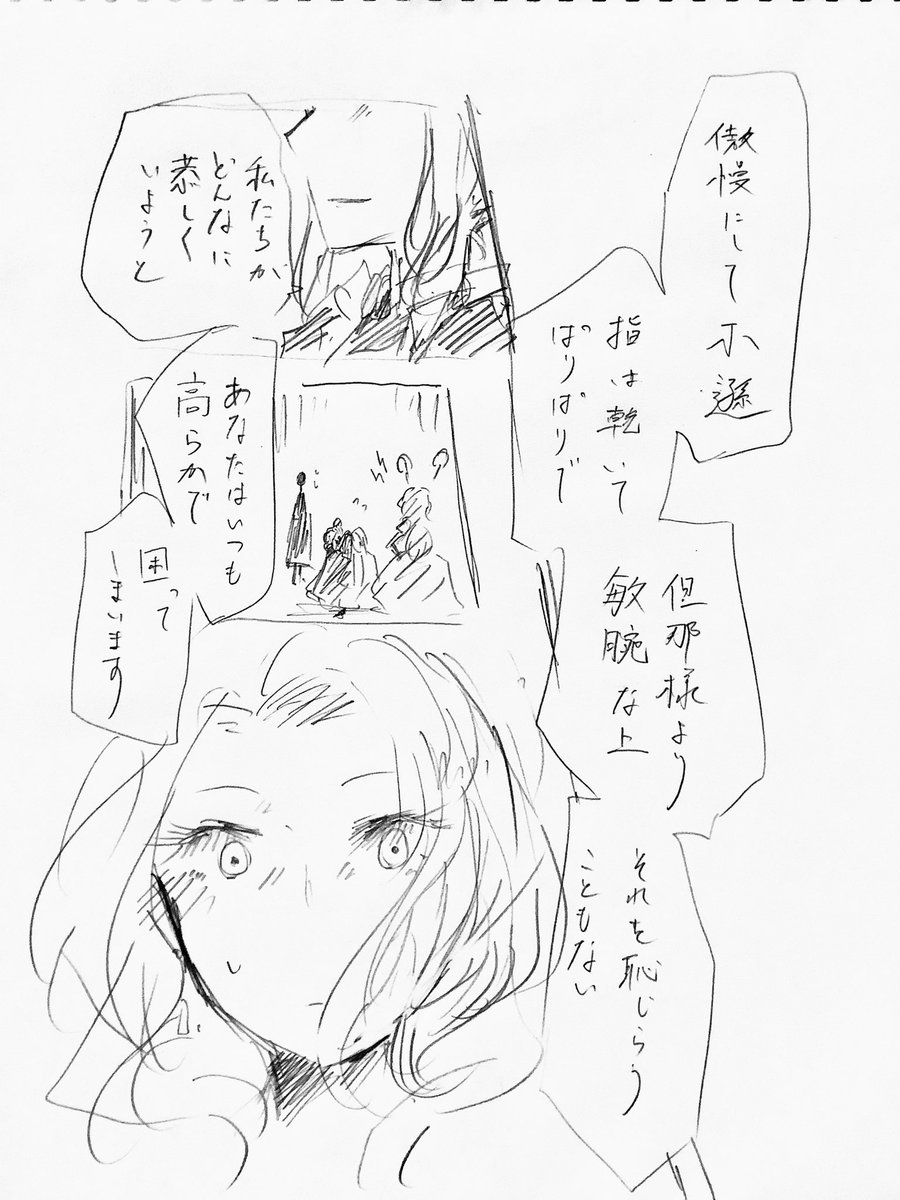 傲慢にして不遜
指は乾いて
ぱりぱりで
但那様より
敏腕な上
それを恥じらう
こともない
私たちが
どんなに
恭しく
いようと
あなたはいつも
高らかで
困って
しまいます